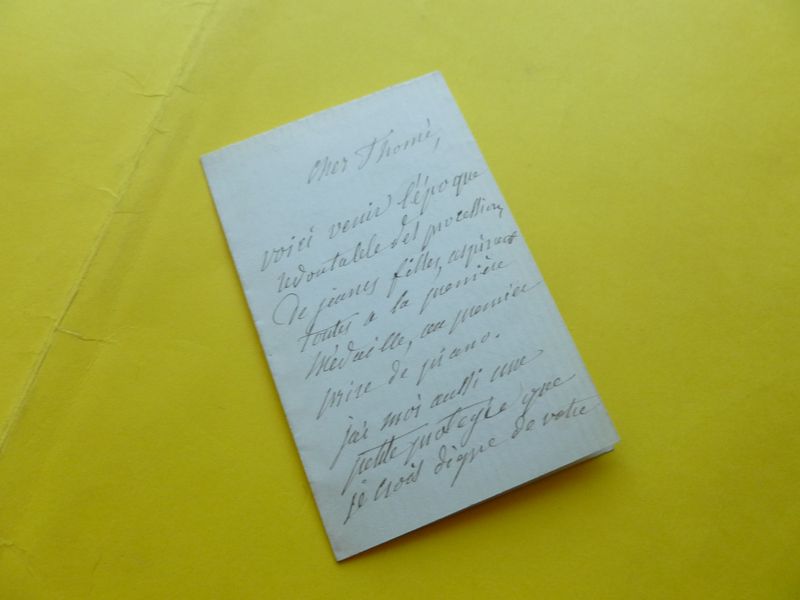 Cher Thomé,
voici venir l'époque
redoutable des processions
de jeunes filles, aspirant
toutes a la première
Médaille, au premier
prix de piano.
j'ai moi aussi une
petite protegée que
je crois digne de votre